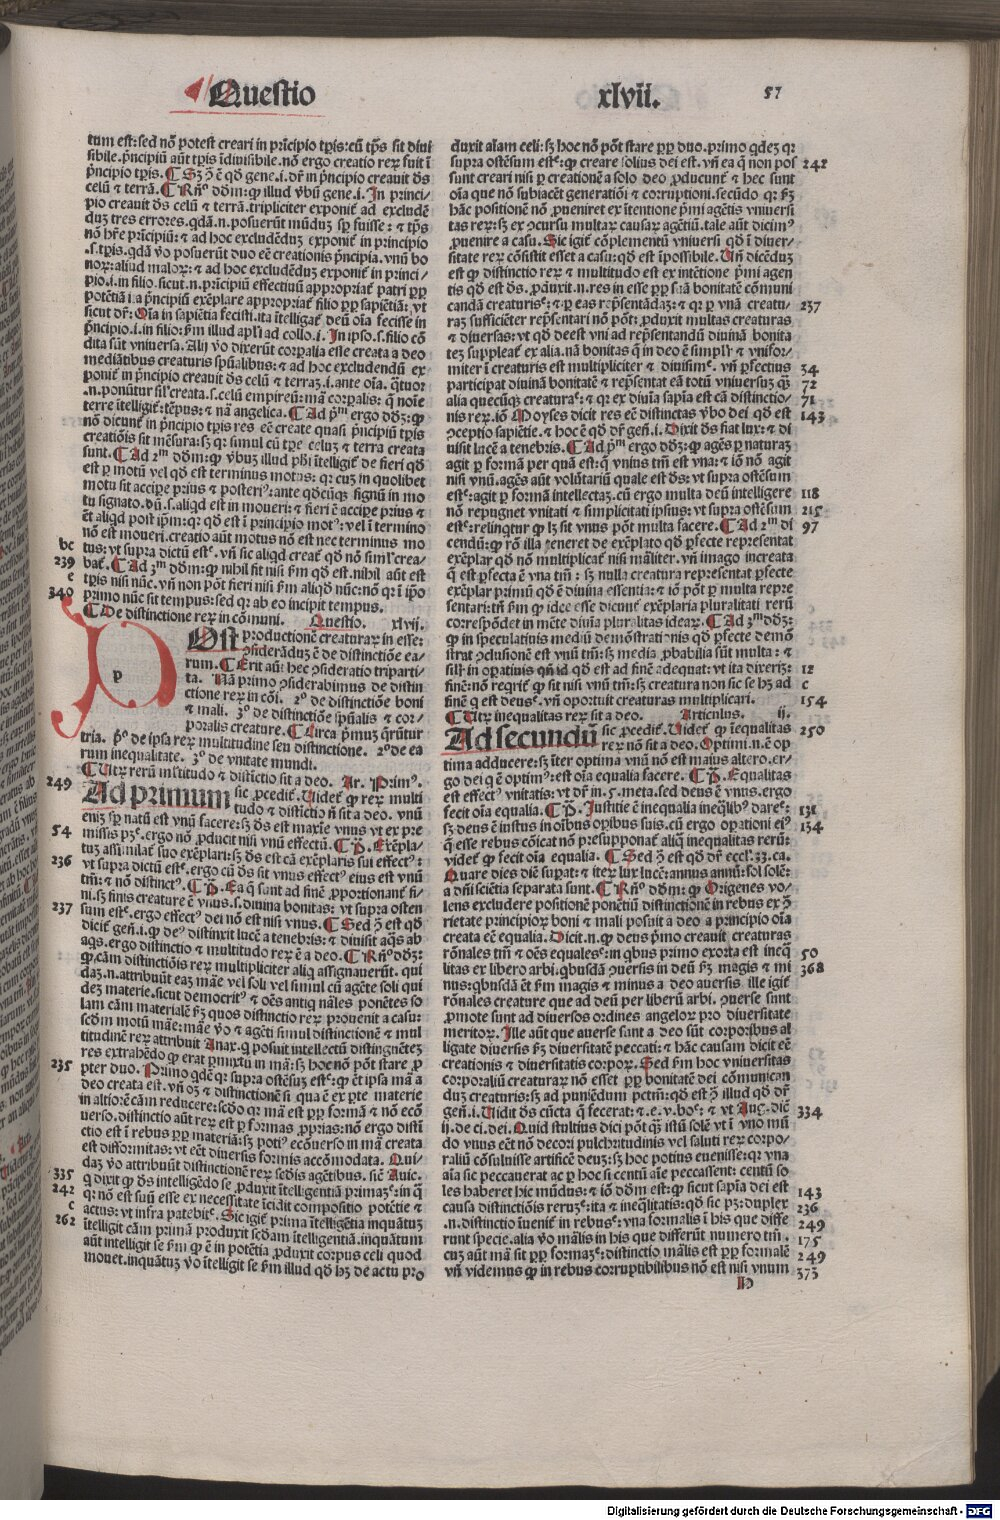 Questio xlvii. 57
tum est: sed nõ potest creari in prīcipio tp̄ris: cũ tp̄s sit diui
sibile. p̄ncipiũ aũt tp̄ris īdiuisibile. nõ ergo creatio reꝝ fuit ī
p̄ncipio tp̄ris. ¶ Sꝫ ↄ̄ ē qđ gene. i. dr̄ in p̄ncipio creauit ds̄
celũ & terrã. ¶ Rñº ddm̄: ꝙ illud v̄bũ gene. i. In princi/
pio creauit ds̄ celũ & terrã. tripliciter exponit̃ ad excludē
duꝫ tres errores. qdã .n. posuerũt mũduꝫ sp̄ fuisse: & tp̄s
nõ hr̄e prīcipiũ: & ad hoc excludēduꝫ exponit̃ in principio
.s. tp̄ris. qdã v̄o posuerũt duo eē creationis p̄ncipia. vnũ bo
noꝝ: aliud maloꝝ: & ad hoc excludēduꝫ exponit̃ in princi/
pio .i. in filio. sicut .n. p̄ncipiũ effectiuũ appropriat̃ patri ꝓp̄
potētiã
sicut dr̄: Oīa in sapiētia fecisti. ita ītelligat̃ deũ oīa fecisse in
p̄ncipio .i. in filio: fm̄ illud apl̄i ad collo. i. In ipso .s. filio cõ
dita sũt vniuersa. Alij v̄o dixerũt corꝑalia esse creata a deo
mediãtibus creaturis sp̄ũalibus: & ad hoc excludendũ ex/
ponit̃ in p̄ncipio creauit ds̄ celũ & terraꝫ .i. ante oīa. q̃tuor
.n. ponũtur sil̄ creata .s. celũ empireũ: mã corꝑalis: q̃ noīe
terre ītelligit̃: tēpus: & nã angelica. ¶ Ad p̄ᵐ ergo dd̄ꝫ: ꝙ
nõ dicunt̃ in p̄ncipio tp̄ris res eē create quasi p̄ncipiũ tp̄ris
creatiõis sit mēsura: sꝫ qꝛ simul cũ tp̄e celuꝫ & terra creata
sunt. ¶ Ad 2ᵐ ddm̄: ꝙ v̄buꝫ illud ph̄i ītelligit̃ de fieri qđ
est ꝑ motũ vel qđ est terminus motus: qꝛ cuꝫ in quolibet
motu sit accipe prius & posteriꝰ: ante qđcũqꝫ signũ in mo
tu signato. dũ .s. aliqđ est in moueri: & fieri ē accipe prius &
ēt aliqđ post ip̄m: qꝛ qđ est ī principio motꝰ: vel ī termino
nõ est moueri. creatio aũt motus nõ est nec terminus mo
bc tus: vt supra dictũ estᵉ. vñ sic aliqđ creat̃ qđ nõ siml̄ crea/
239 bat̃. ¶ Ad 3ᵐ ddm̄: ꝙ nihil fit nisi fm̄ qđ est. nihil aũt est
e tp̄ris nisi nũc. vñ non põt fieri nisi fm̄ aliqđ nũc: nõ qꝛ ī ip̄o
340 primo nũc sit tempus: sed qꝛ ab eo incipit tempus.
¶ De distinctione reꝝ in cõmuni. Questio. xlvij.
p Ost productionē creaturaꝝ in esse:
ↄ̄siderãduꝫ ē de distinctiõe ea/
rum. ¶ Erit aũt hec ↄ̄sideratio triparti/
ta. Nã primo ↄ̄siderabimus de distin
ctione reꝝ in cõi. 2º de distinctiõe boni
& mali. 3º de distinctiõe sp̄ũalis & cor/
poralis creature. ¶ Circa p̄muꝫ q̃rũtur
tria. p̄º de ipsa reꝝ multitudine seu distinctione. 2º de ea
rum inequalitate. 3º de vnitate mundi.
¶ Utꝝ rerũ multitudo & distīctio sit a deo. Ar. Prim⁹.
249 Ad primum sic ꝓcedit̃. Uidet̃ ꝙ reꝝ multi
tudo & distīctio nõ sit a deo. vnũ
eniꝫ sp̄ natũ est vnũ facere: sꝫ ds̄ est maxīe vnus vt ex p̄re
54 missis pꝫᵉ. ergo nõ ꝓducit nisi vnũ effectũ. ¶ P̄. Exēpla/
tuꝫ assimilat̃ suo exēplari: sꝫ ds̄ est cã exēplaris sui effectꝰ:
236 vt supra dictũ estᵉ. ergo cũ ds̄ sit vnus effectꝰ eius est vnũ
tm̄: & nõ distinctꝰ. ¶ P̄. Ea q̃ sunt ad finē ꝓportionant̃ fi/
ni. sꝫ finis creature ē vnus .s. diuina bonitas: vt supra osten
237 sum estᵉ. ergo effectꝰ dei nõ est nisi vnus. ¶ Sed ↄ̄ est qđ
dicit̃ geñ. i. ꝙ deꝰ distinxit lucē a tenebris: & diuisit aq̃s ab
aqs. ergo distinctio & multitudo reꝝ ē a deo. ¶ Rñº dd̄ꝫ:
ꝙ cãm distinctiõis reꝝ multipliciter aliq̃ assignauerũt. qui
daꝫ .n. attribuũt eaꝫ mãe vel soli vel simul cũ agēte: soli qui
deꝫ materie. sicut democritꝰ & oēs antiq̃ nãles ponētes so
lam cãm materialē: fꝫ quos distinctio reꝝ prouenit a casu:
scdm motũ mãe: mãe v̄o & agēti simul distinctionē & mul
titudinē reꝝ attribuit Anax. q̃ posuit intellectũ distinguētez
res extrahēdo ꝙ erat ꝑmixtũ in mã: sꝫ hoc nõ põt stare ꝓ
235 pter duo. Primo qdē qꝛ supra ostēsuꝫ estᵉ: ꝙ ēt ipsa mã a
deo creata est. vñ oꝫ & distinctionē si qua ē ex pte materie
in altiorē cãm reducere: scdo qꝛ mã est ꝓp̄ formã & nõ ecõ
uerso. distinctio aũt reꝝ est ꝑ formas ꝓprias: nõ ergo disti
ctio est ī rebus ꝓp̄ materiã: sꝫ potiꝰ ecõuerso in mã creata
est difformitas: vt eēt diuersis formis accõmodata. Qui/
daꝫ v̄o attribuũt distinctionē reꝝ scdis agētibus. sicē Auic.
335 q̃ dixit ꝙ ds̄ intelligēdo se ꝓduxit ītelligentiã primaꝫᵉ: in q̃
242 qꝛ nõ est suũ esse ex necessitate īcidit compositio potētie &
c actus: vt infra patebitᵉ. Sic igit̃ prima ītelligētia inquãtuꝫ
262 ītelligit cãm primã produxit scdam ītelligentiã. inquãtum
aũt intelligit se fm̄ ꝙ ē in potētia ꝓduxit corpus celi quod
mouet. inquãtuꝫ v̄o ītelligit se fm̄ illud qđ hꝫ de actu pro
duxit aīam celi: sꝫ hoc nõ põt stare ꝓp̄ duo. primo qdeꝫ qꝛ
supra ostēsum estᵉ: ꝙ creare solius dei est. vñ ea q̃ non pos 242
sunt creari nisi ꝑ creationē a solo deo ꝓducunt̃ & hec sunt
oīa que nõ subiacēt generatiõi & corruptioni. secũdo qꝛ fꝫ
hãc positionē nõ ꝓueniret ex ītentione p̄mi agētis vniuersi
tas reꝝ: sꝫ ex ↄ̄cursu multaꝝ causaꝝ agētiũ. tale aũt dicimꝰ
ꝓuenire a casu. Sic igit̃ cõplementũ vniuersi qđ ī diuer/
sitate reꝝ cõsistit esset a casu: qđ est īpossibile. Uñ dicēduꝫ
est ꝙ distinctio reꝝ & multitudo est ex intētione p̄mi agen
tis qđ est ds̄. ꝓduxit .n. res in esse ꝓp̄ suã bonitatē cõmuni
candã creaturisᵉ: & ꝑ eas rep̄sentãdaꝫ: & qꝛ ꝑ vnã creatu/ 237
raꝫ sufficiēter rep̄sentari nõ põt: ꝓduxit multas creaturas
& diuersas: vt qđ deest vni ad rep̄sentandũ diuinã bonita
teꝫ suppleat̃ ex alia. nã bonitas q̃ in deo ē simpl̄r & vnifor/
miter ī creaturis est multipliciter & diuisimᵉ. vñ ꝑfectius 34
participat diuinã bonitatē & rep̄sentat eã totũ vniuersuꝫ q̃ꝫ 72
alia quecũqꝫ creaturaᵉ: & qꝛ ex diuīa sapīa est cã distinctio/ 71
nis reꝝ. iõ Moyses dicit res eē distinctas v̄bo dei qđ est 143
ↄ̄ceptio sapiētie. & hoc ē qđ dr̄ gen̄. i. Dixit ds̄ fiat lux: & di
uisit lucē a tenebris. ¶ Ad p̄ᵐ ergo dd̄ꝫ: ꝙ agēs ꝑ naturaꝫ
agit ꝑ formã per quã est: q̃ vnius tm̄ est vna: & iõ nõ agit
nisi vnũ. agēs aũt volũtariũ quale est ds̄: vt supra ostēsum
estᵉ: agit ꝑ formã intellectaꝫ. cũ ergo multa deũ intelligere 118
nõ repugnet vnitati & simplicitati ipsius: vt supra ostēsum 215
estᵉ: relinqtur ꝙ lꝫ sit vnus põt multa facere. ¶ Ad 2ᵐ di 97
cendũ: ꝙ rõ illa teneret de exēplato qđ ꝑfecte representat
exēplar qđ nõ multiplicat̃ nisi mãliter. vñ imago increata
q̃ est ꝑfecta ē vna tm̄: sꝫ nulla creatura representat ꝑfecte
exēplar primũ qđ ē diuina essentia: & iõ põt ꝑ multa repre
sentari: tñ fm̄ ꝙ idee esse dicunt̃ exēplaria pluralitati rerũ
correspõdet in mēte diuīa pluralitas ideaꝝ. ¶ Ad 3ᵐ dd̄ꝫ:
ꝙ in speculatiuis mediũ demõstrationis qđ ꝑfecte demõ
strat ↄ̄clusionē est vnũ tm̄: sꝫ media ꝓbabilia sũt multa: &
sil̄r in oꝑatiuis qñ id qđ est ad finē adequat: vt ita dixeriꝫ: 12
finē: nõ reqrit̃ ꝙ sit nisi vnũ tm̄: sꝫ creatura non sic se hꝫ ad c
finē q̃ est deusᵉ. vñ oportuit creaturas multiplicari. 154
¶ Utꝝ inequalitas reꝝ sit a deo. Articulus. ij.
Ad secundũ sic ꝓcedit̃. Uidet̃ ꝙ īequalitas 250
reꝝ nõ sit a deo. Optimi .n. ē op
tima adducere: sꝫ īter optima vnũ nõ est maius altero. er/
go dei q̃ ē optimꝰ: est oīa equalia facere. ¶ P̄. Equalitas
est effectꝰ vnitatis: vt dr̄ in .5. meta. sed deus ē vnus. ergo
fecit oīa equalia. ¶ P̄. Iustitie ē inequalia īneq̃libꝰ dareᵉ: 131
sꝫ deus ē iustus in oībus oꝑibus suis. cũ ergo oꝑationi eiꝰ 134
q̃ esse rebus cõicat nõ presupponat̃ aliq̃ inequalitas rerũ:
videt̃ ꝙ fecit oīa equalia. ¶ Sed ↄ̄ est qđ dr̄ eccl̄. 33. ca.
Quare dies diē supat: & iteꝝ lux lucē: annus annũ: sol solē:
a dñi sciētia separata sunt. ¶ Rñº ddm̄: ꝙ Origenes vo/
lens excludere positionē ponētiũ distinctionē in rebus ex ↄ̄
rietate principioꝝ boni & mali posuit a deo a principio oīa
creata eē equalia. Dicit .n. ꝙ deus p̄mo creauit creaturas
rõnales tm̄ & oēs equalesᵉ: in qbus primo exorta est ineq̃ 50
litas ex libero arbi. qbusdã ↄ̄uersis in deũ fꝫ magis & mi 368
nus: qbusdã ēt fm̄ magis & minus a deo auersis. ille igit̃
rõnales creature que ad deũ per liberũ arbi. ↄ̄uerse sunt
ꝓmote sunt ad diuersos ordines angeloꝝ pro diuersitate
meritoꝝ. Ille aũt que auerse sunt a deo sũt corporibus al
ligate diuersis fꝫ diuersitatē peccati: & hãc causam dicit eē
creationis & diuersitatis corpoꝝ. Sed fm̄ hoc vniuersitas
corporaliũ creaturaꝝ nõ esset ꝓp̄ bonitatē dei cõmunican
duꝫ creaturis: sꝫ ad puniēdum pctm̄: qđ est ↄ̄ illud qđ dr̄
geñ. i. Uidit ds̄ cũcta q̃ fecerat: & .e. v. boᵉ: & vt Aug. dicē 334
ij. de ci. dei. Quid stultius dici põt q̃ꝫ istũ solē vt ī vno mũ
do vnus eēt nõ decori pulchritudinis vel saluti reꝝ corpo/
raliũ cõsuluisse artificē deuꝫ: sꝫ hoc potius euenisse: qꝛ vna
aīa sic peccauerat ac ꝑ hoc si centũ aīe peccassent: centũ so
les haberet hic mũdus: & iõ ddm̄ est: ꝙ sicut sapīa dei est 143
causa distinctiõis reruꝫᵉ: ita & ineq̃litatis: qđ sic pꝫ: duplex 236
.n. distinctio īuenit̃ in rebusᵉ: vna formalis ī his que diffe 249
runt specie. alia v̄o mãlis in his que differũt numero tm̄. 175
cuꝫ aũt mã sit ꝓp̄ formaꝫᵉ: distinctio mãlis est ꝓp̄ formalē 249
vñ videmus ꝙ in rebus corruptibilibus nõ est nisi vnum 373
h
Digitalisierung gefördert durch die Deutsche Forschungsgemeinschaft - DFG